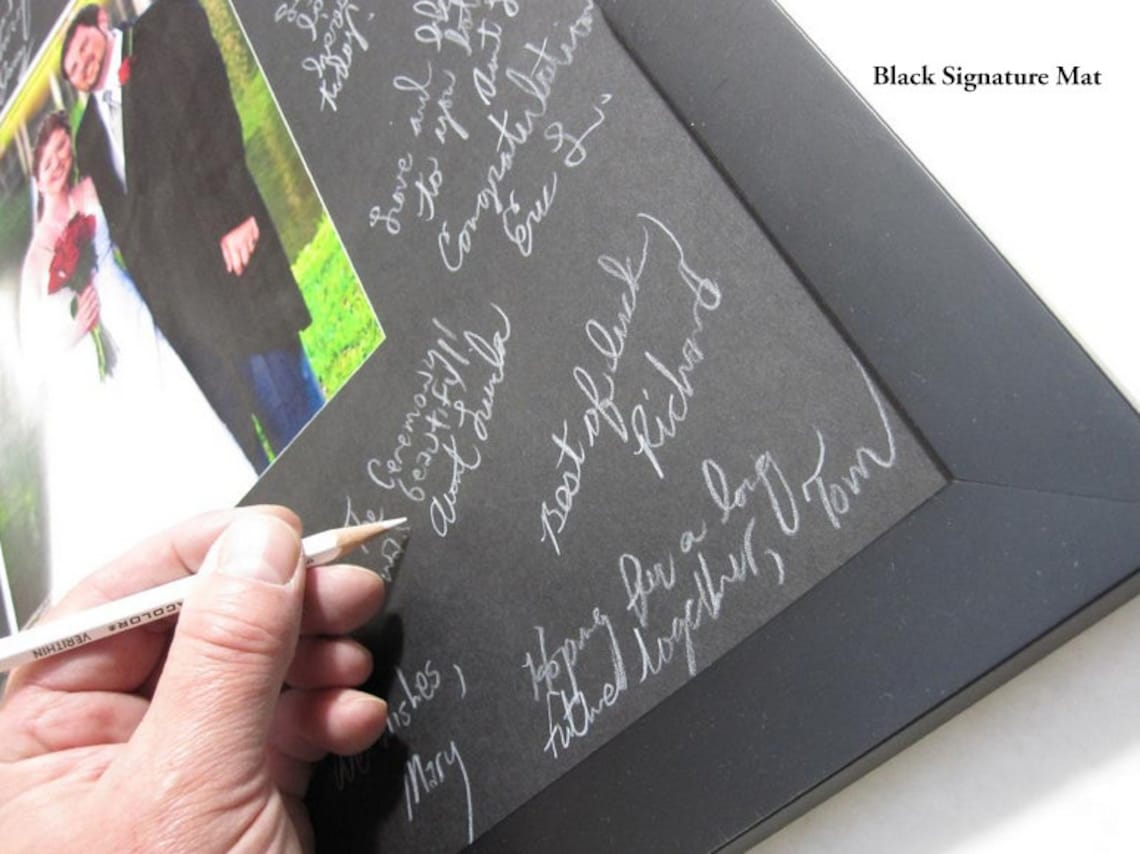 Black Signature Mat
today!
Love and
to you
Aunt
Congratulations
Eric L.
The Ceremony
was beautiful!
Aunt Linda
Best of luck
Richard
Hoping for a long
future together,
Tom
Wishes,
Mary
COLOR® VERITHIN